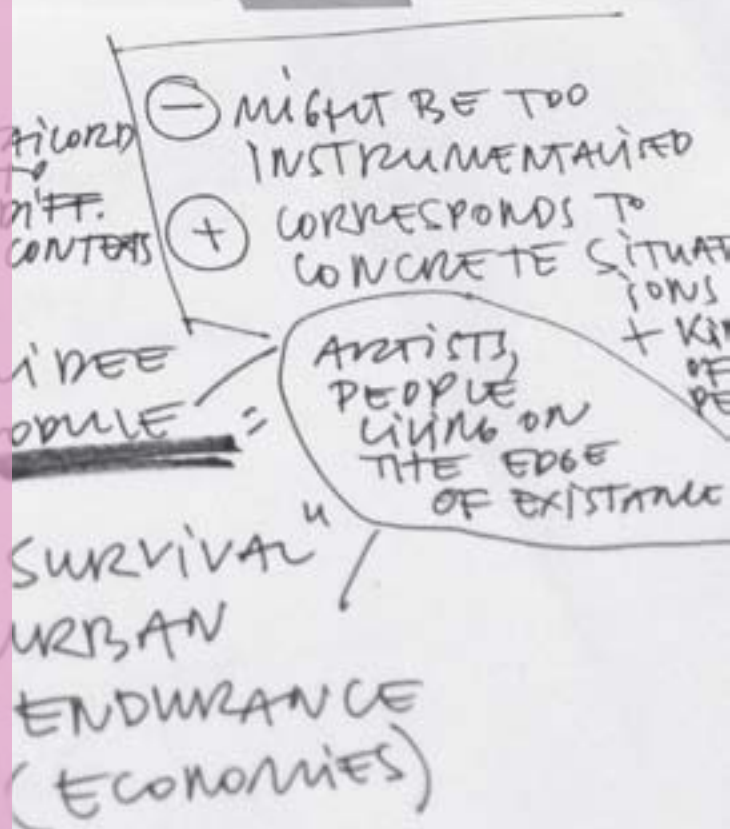 ⊖ MIGHT BE TOO
INSTRUMENTALISED
⊕ CORRESPONDS TO
CONCRETE SITUAT
IONS
+ KIN
OF
PE
TO
DIFF.
CONTEXTS
IDEE
ODULE =
ARTISTS,
PEOPLE
LIVING ON
THE EDGE
OF EXISTANCE
SURVIVAL"
URBAN
ENDURANCE
(ECONOMIES)